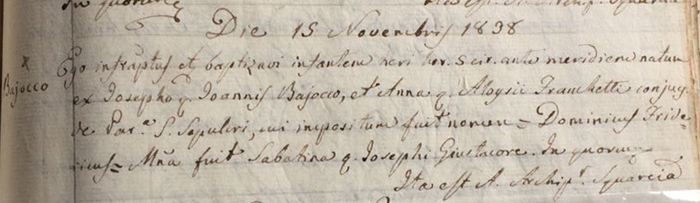 In quorum
Die 15 Novembris 1838
Bajocco
Ego infrąptus et baptizavi infantem heri hor. 5 cir. ante meridiem natum
ex Josepho q. Joannis Bajocco, et Anna q. Aloysii Franchetti conjug.
de Par.a S. Sepulcri, cui impositum fuit nomen = Dominicus Fride-
ricus = Mña fuit Sabatina q. Josephi Giustacore. In quorum
Ita est A. Archipr. Squarcia